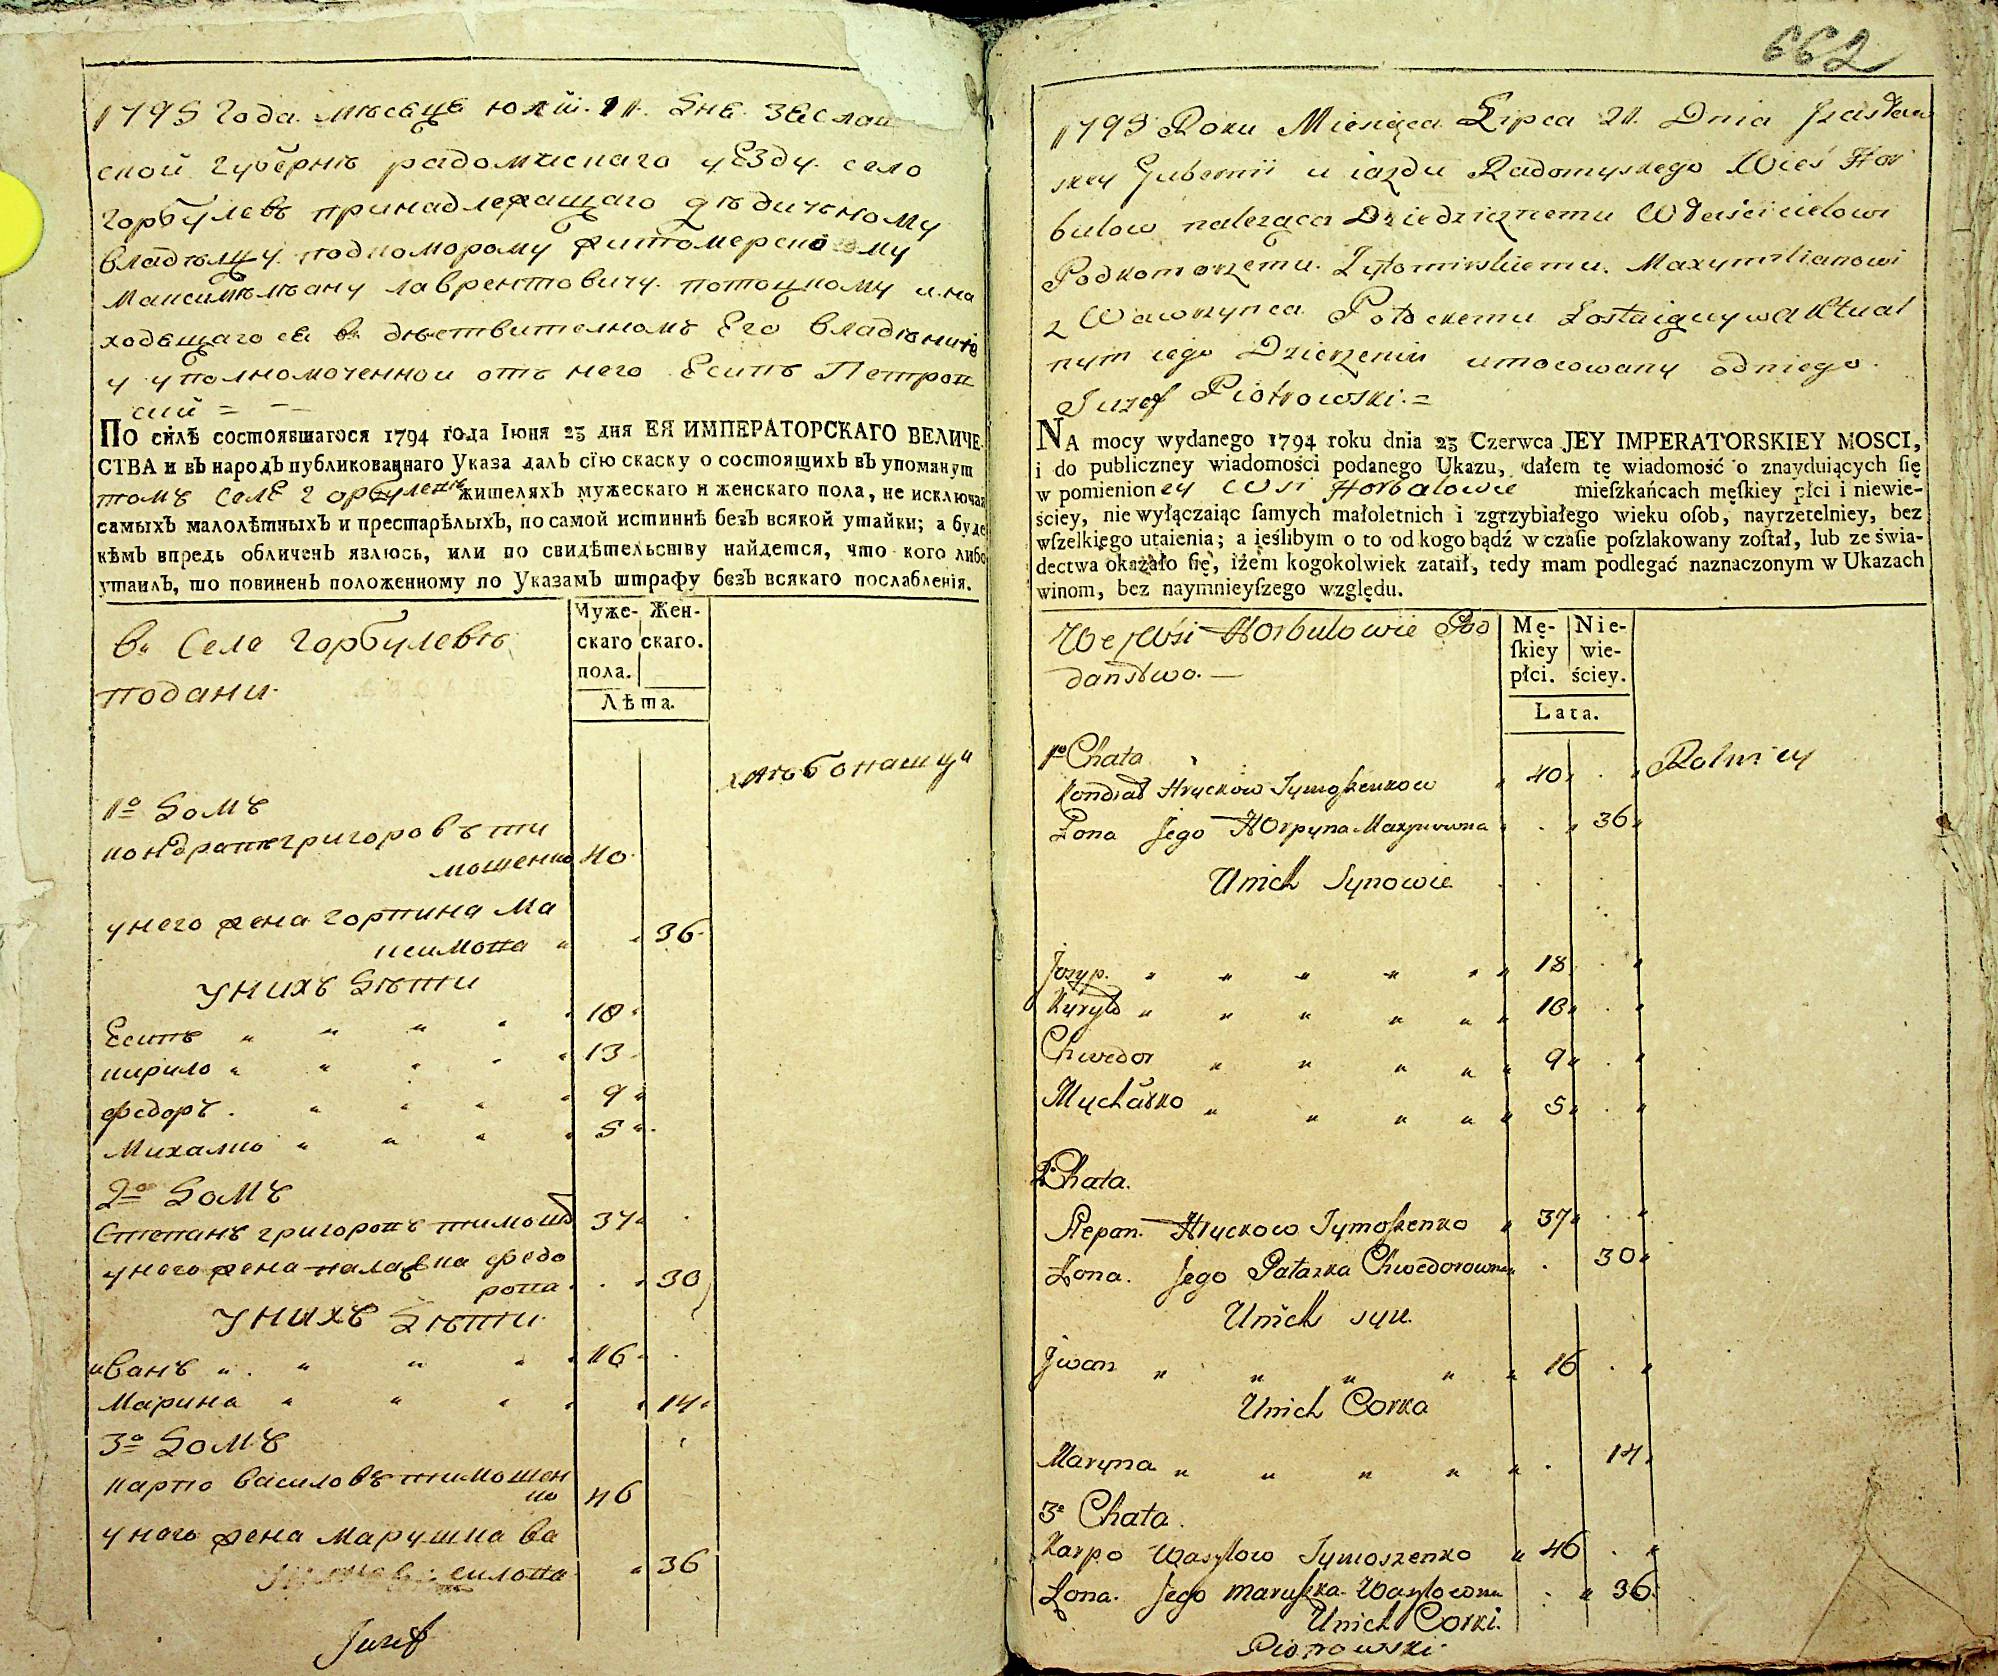 1795 Года мѣсеца юлїй. 11. дне Заслав
ской губернѣ радомыснаго уезду село
Горбулевъ принадлежащаго дѣдичному
владѣлцу подкоморому житомерскому
Максимилѣану лаврентовичу потоцкому и на
ходещаго се в дѣствителномъ Его владѣнiи
у уполномоченнои отъ него Есипъ Петров
ский = - -
ПО силѣ состоявшагося 1794 года Iюня 23 дня ЕЯ ИМПЕРАТОРСКАГО ВЕЛИЧЕ-
СТВА и въ народъ публикованнаго Указа далъ сїю скаску о состоящихъ въ упомянут
томъ селе Горбулеве жителяхъ мужескаго и женскаго пола, не исключая
самыхъ малолѣтныхъ и престарѣлыхъ, по самой истиннѣ безъ всякой утайки; а буде
кѣмъ впредь обличенъ явлюсь, или по свидѣтельству найдется, что кого либо
утаилъ, то повиненъ положенному по Указамъ штрафу безъ всякаго послабленiя.
Муже- Жен-
скаго скаго.
пола.
Лѣта.
в Селе Горбулевѣ
подани
хлѣбопашцы
1о домъ
кондратъ григоровъ ти
мошенко 40
у него жена горпина ма
ксимова " " 36
У нихъ дѣти
Есипъ " " " " " 18 "
кирило " " " " " 13
федоръ . " " " " 9 "
Михалко " " " " 5 "
2о домъ
Степанъ григоровъ тимош 37
у него жена палажка федо
рова . . " 30
У нихъ дѣти
иванъ " . " " " " 16 "
Марина " " " " " 14 "
3о домъ
карпо василовъ тимошен
ко 46
у него жена марушка ва
силова " 36
Jozef
662
1795 Roku Miesiąca Lipca 21. Dnia Jzasław
skey Gubernii u iazdu Radomyskego Wieś Hor
bulow naleząca Dziedzicznemu Właścicielowi
Podkomorzemu Zytomirskiemu Maxymilianowi
z Wawrzynca Potockemu Zostaiący w aktual
nym iego Dzierzeniu umocowany od niego
Juzef Piotrowski. =
NA mocy wydanego 1794 roku dnia 23 Czerwca JEY IMPERATORSKIEY MOSCI,
i do publiczney wiadomości podanego Ukazu, dałem tę wiadomość o znayduiących ſię
w pomienioney wsi Horbulowie mieſzkańcach męſkiey płci i niewie-
ściey, nie wyłączaiąc ſamych małoletnich i zgrzybiałego wieku oſob, nayrzetelniey, bez
wſzelkiego utaienia; a ieślibym o to od kogo bądź w czaſie poſzlakowany zoſtał, lub ze świa-
dectwa okazało ſię, iżem kogokolwiek zataił, tedy mam podlegać naznaczonym w Ukazach
winom, bez naymnieyſzego względu.
We Wsi Horbulowie Pod
danstwo. —
Mę- Nie-
ſkiey wie-
płci. ściey.
Lata.
1o Chata
Kondrat Hryckow Tymoszenkow " 40 " . " Rolnicy
Zona Jego Horpyna Maxymowna " . " 36 "
U nich Synowie
Jozyp. " " " " " " 18 . "
Kyryło " " " " " " 13 " . "
Chwedor " " " " " 9 " . "
Mychałko " " " " " 5 " . "
2 Chata.
Stepan Hryckow Tymoszenko " 37 " . "
Zona. Jego Palazka Chwedorowna " . 30 "
U nich syn.
Jwan " " " " " 16 . "
U nich Corka
Maryna " " " " " . 14 "
3o Chata.
Karpo Wasylow Tymoszenko " 46 . "
Zona. Jego Maruszka Wasylowna . " 36.
U nich Corki.
Piotrowski